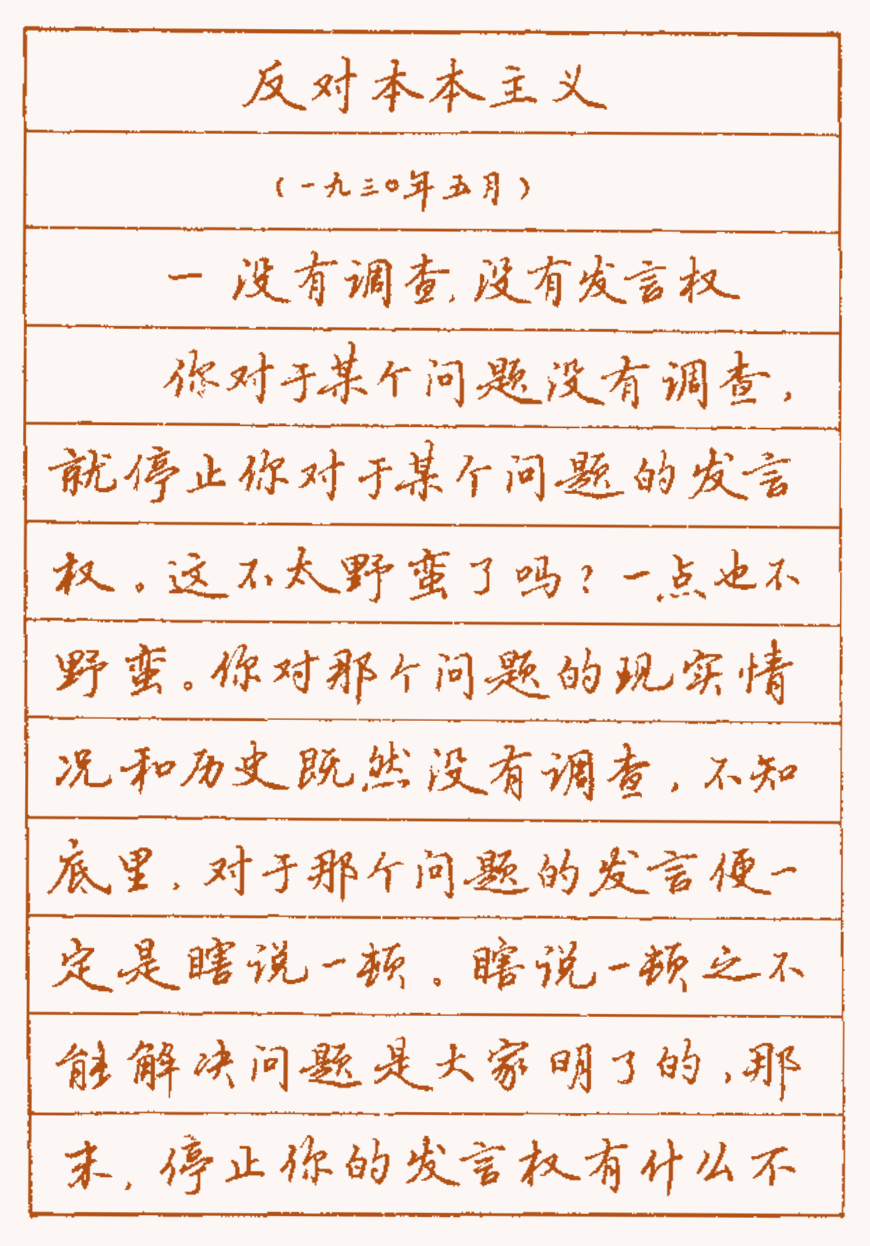 反对本本主义
（一九三〇年五月）
一 没有调查，没有发言权
你对于某个问题没有调查，
就停止你对于某个问题的发言
权。这不太野蛮了吗？一点也不
野蛮。你对那个问题的现实情
况和历史既然没有调查，不知
底里，对于那个问题的发言便一
定是瞎说一顿。瞎说一顿之不
能解决问题是大家明了的，那
末，停止你的发言权有什么不